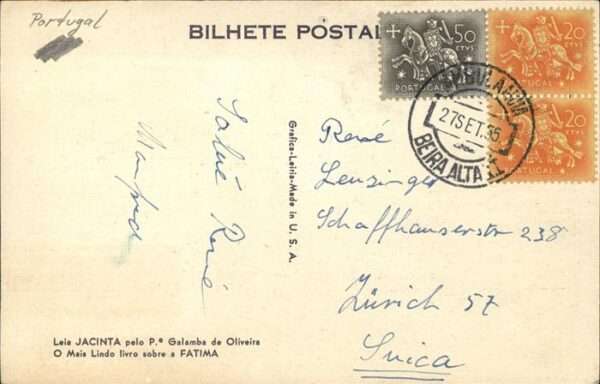 Portugal
BILHETE POSTAL
50
CTVS
PORTUGAL
20
CTVS
PORTUGAL
20
CTVS
PORTUGAL
AMBULANCIA
27SET.55
BEIRA ALTA II
Salué René
Manfred
Grafica-Leiria-Made in U.S.A.
René
Lenzinger
Schaffhauserstr 238
Zürich 57
Suica
Leia JACINTA pelo P.e Galamba de Oliveira
O Mais Lindo livro sobre a FATIMA